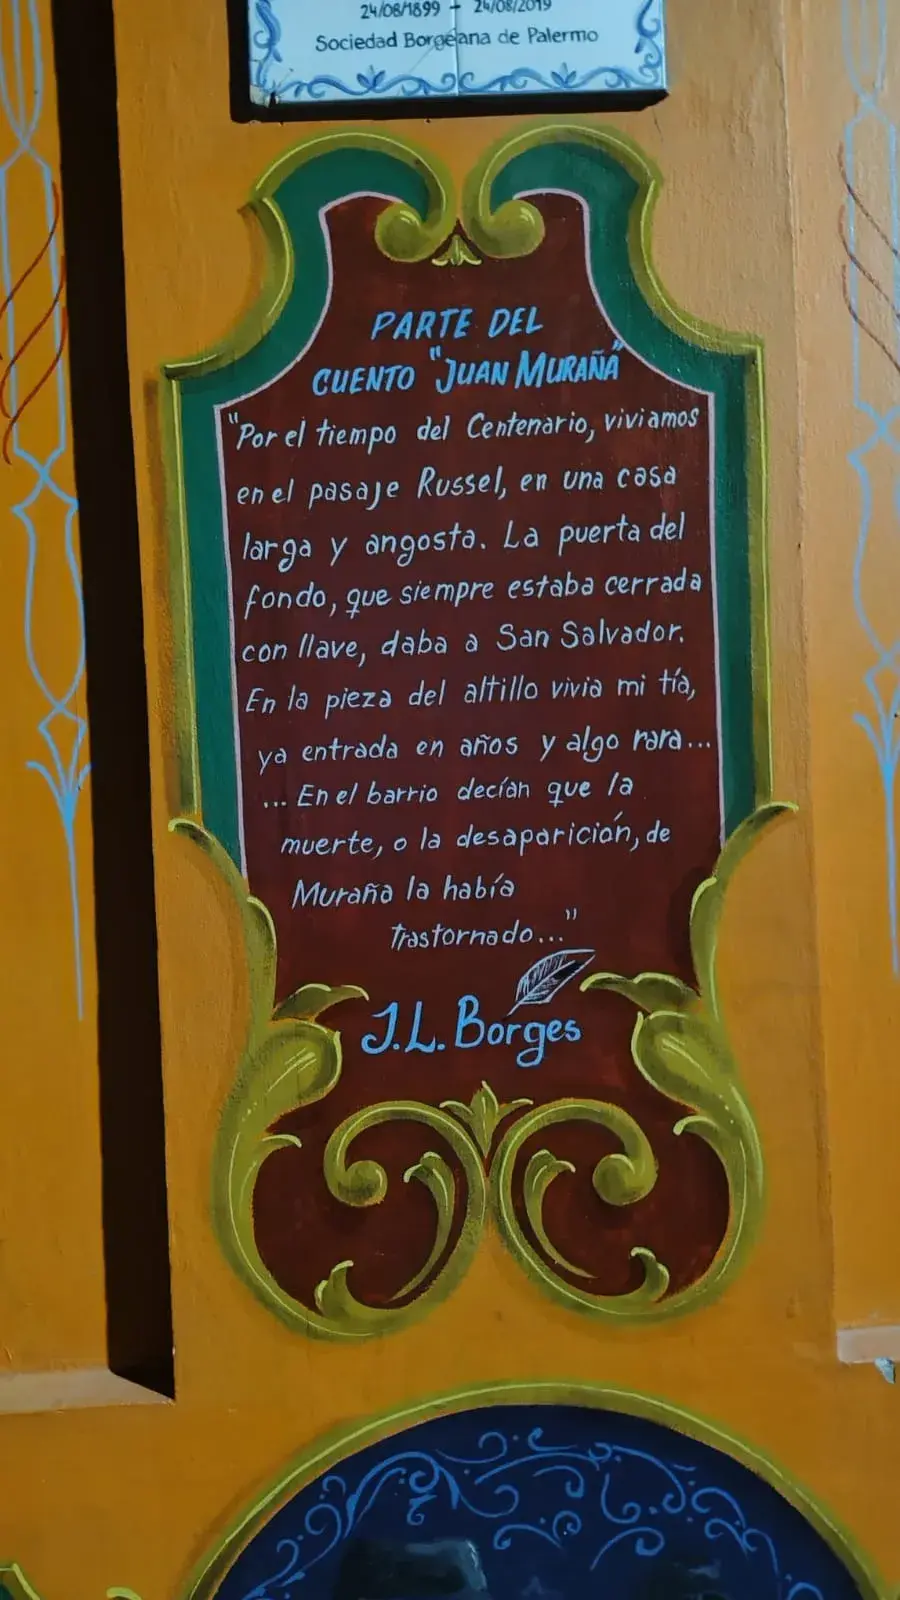 24/08/1899 - 24/08/2019
Sociedad Borgeana de Palermo
PARTE DEL
CUENTO "JUAN MURAÑA"
"Por el tiempo del Centenario, viviamos
en el pasaje Russel, en una casa
larga y angosta. La puerta del
fondo, que siempre estaba cerrada
con llave, daba a San Salvador.
En la pieza del altillo vivia mi tía,
ya entrada en años y algo rara...
... En el barrio decían que la
muerte, o la desaparición, de
Muraña la había
trastornado..."
J.L. Borges